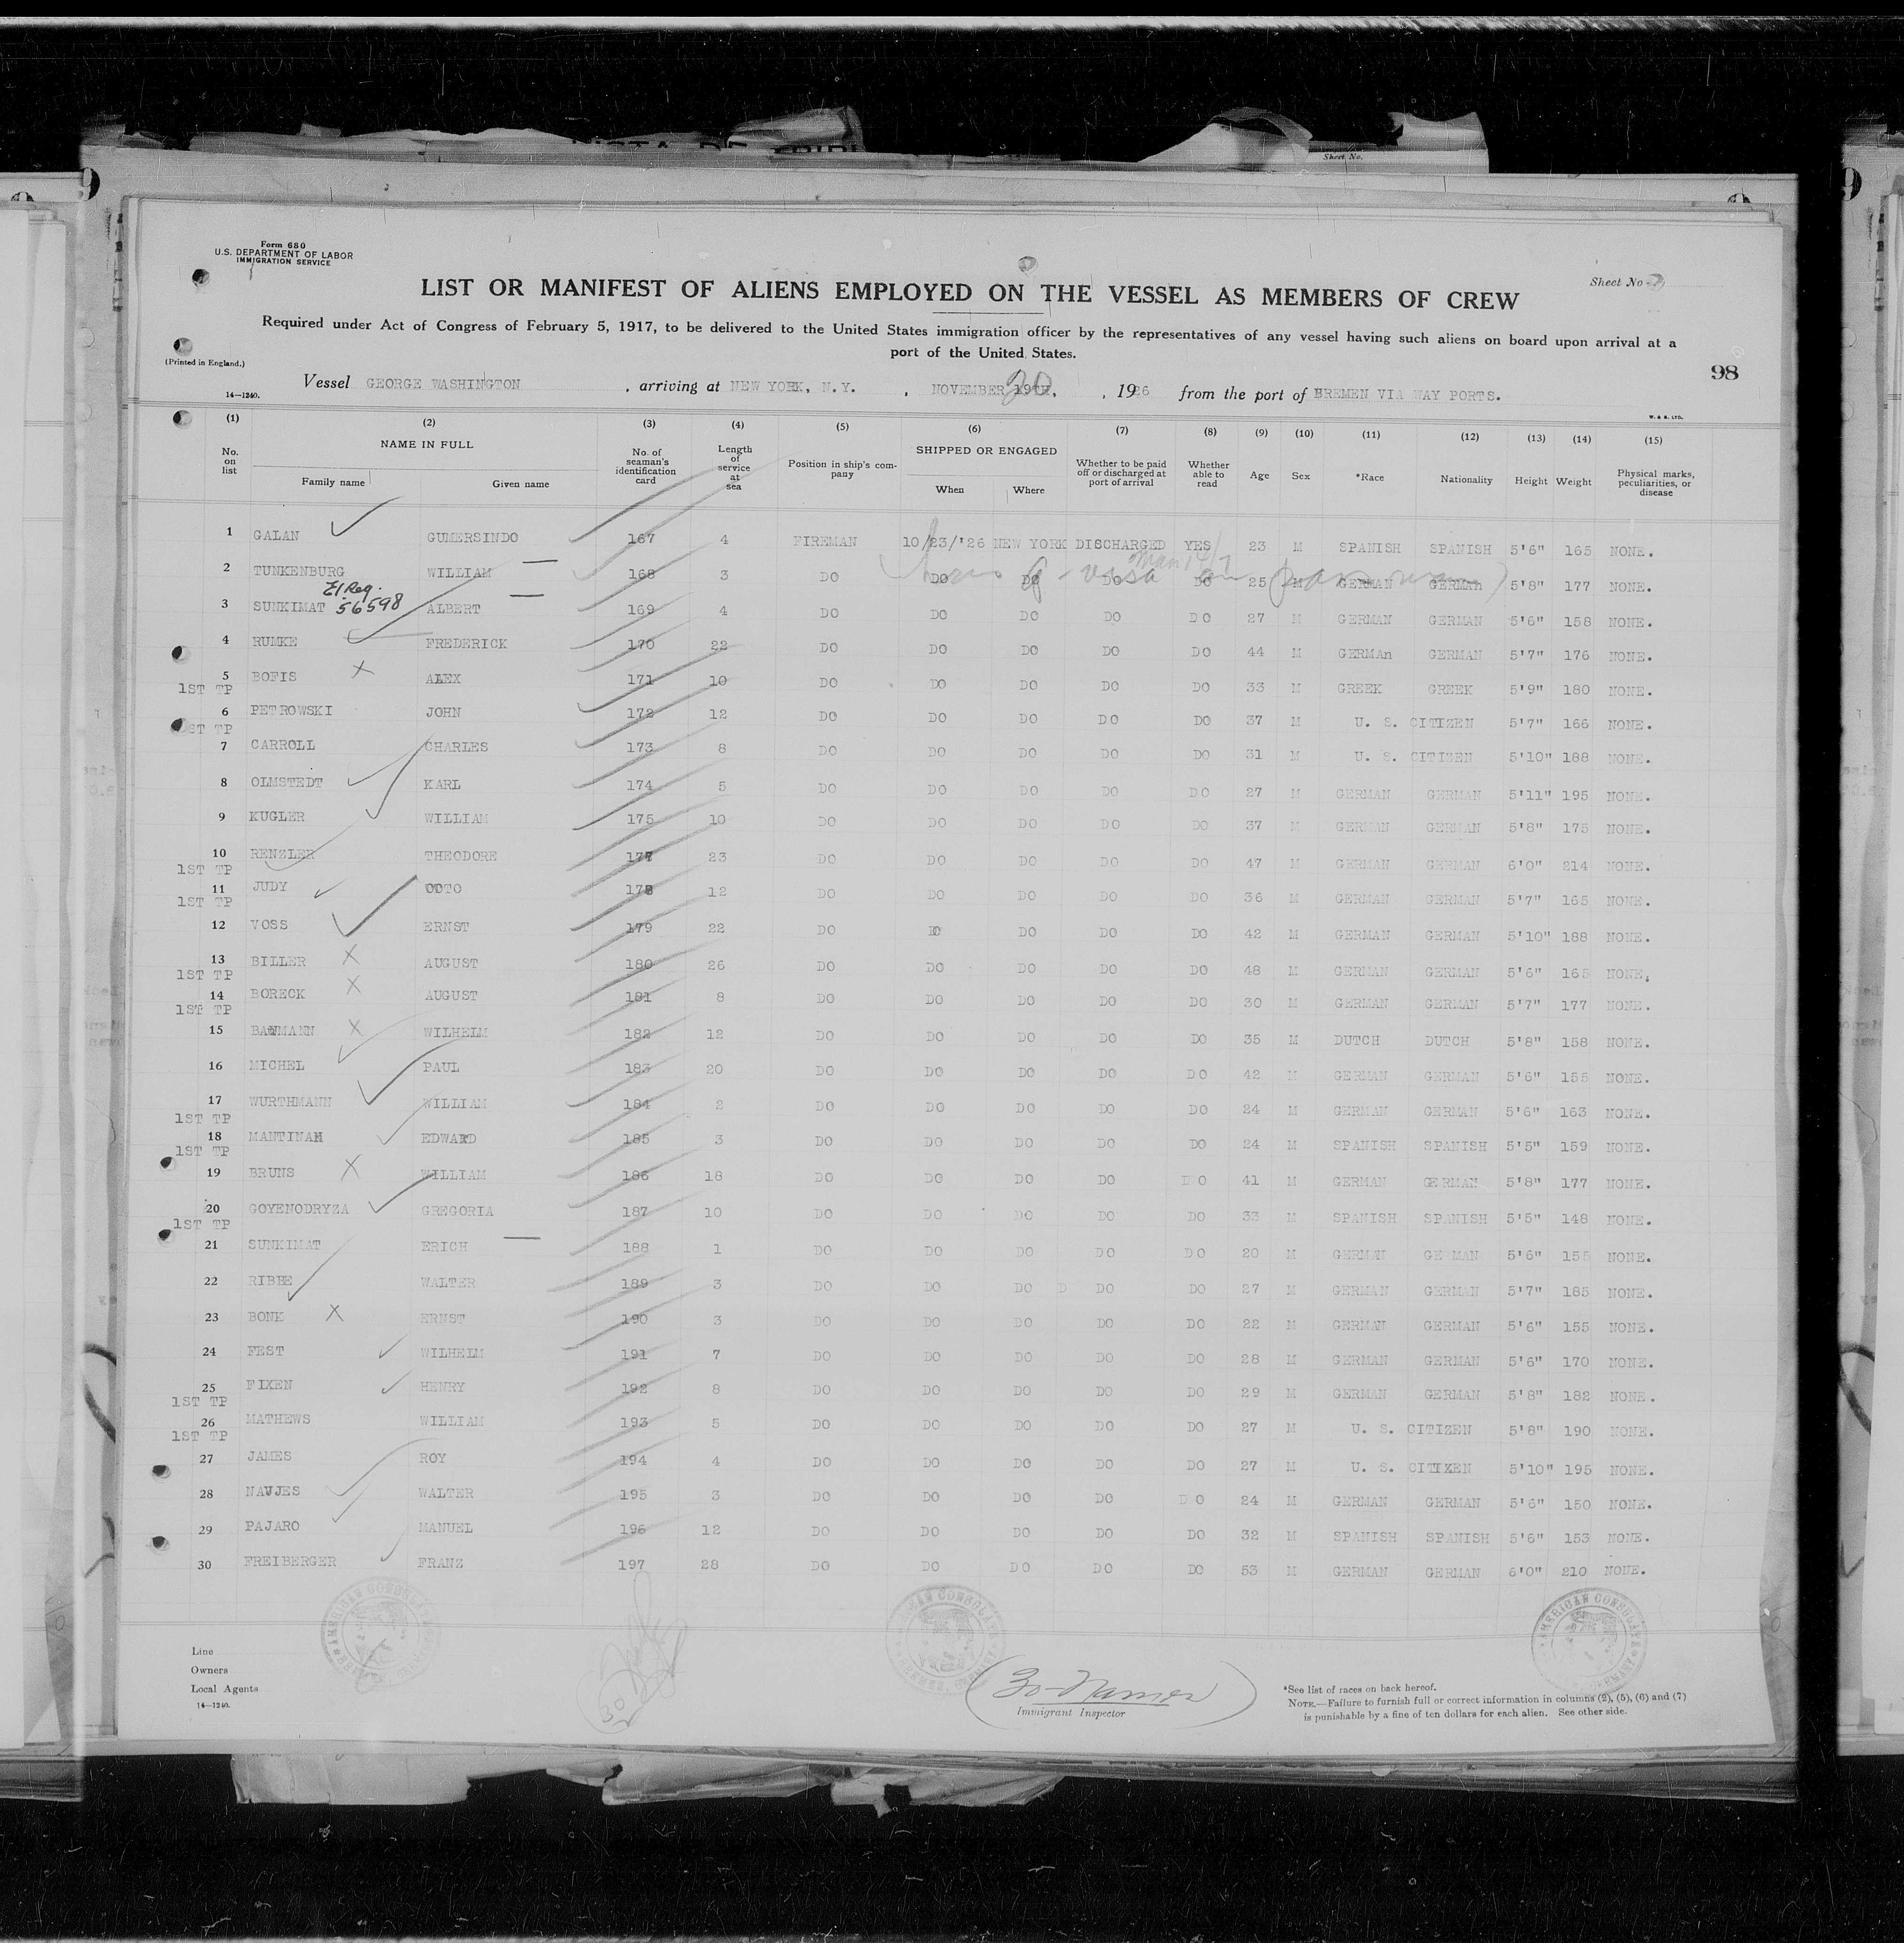 Sheet No.
Form 680
U.S. DEPARTMENT OF LABOR
IMMIGRATION SERVICE
Sheet No
LIST OR MANIFEST OF ALIENS EMPLOYED ON THE VESSEL AS MEMBERS OF CREW
Required under Act of Congress of February 5, 1917, to be delivered to the United States immigration officer by the representatives of any vessel having such aliens on board upon arrival at a
port of the United States.
(Printed in England.)
98
Vessel GEORGE WASHINGTON , arriving at NEW YORK, N.Y. , NOVEMBER 19TH, 20 , 1926 from the port of BREMEN VIA WAY PORTS.
14—1240.
W. & S. LTD.
(1) (2) (3) (4) (5) (6) (7) (8) (9) (10) (11) (12) (13) (14) (15)
No. on list NAME IN FULL Family name Given name No. of seaman's identification card Length of service at sea Position in ship's company SHIPPED OR ENGAGED When Where Whether to be paid off or discharged at port of arrival Whether able to read Age Sex *Race Nationality Height Weight Physical marks, peculiarities, or disease
1 GALAN GUMERSINDO 167 4 FIREMAN 10/23/'26 NEW YORK DISCHARGED YES 23 M SPANISH SPANISH 5'6" 165 NONE.
2 TUNKENBURG WILLIAM 168 3 DO DO DO DO DO 25 M GERMAN GERMAN 5'8" 177 NONE.
El Reg.
56598
3 SUNKIMAT ALBERT 169 4 DO DO DO DO DO 27 M GERMAN GERMAN 5'6" 158 NONE.
4 RUMKE FREDERICK 170 22 DO DO DO DO DO 44 M GERMAn GERMAN 5'7" 176 NONE.
5 BOFIS X ALEX 171 10 DO DO DO DO DO 33 M GREEK GREEK 5'9" 180 NONE.
1ST TP
6 PETROWSKI JOHN 172 12 DO DO DO DO DO 37 M U. S. CITIZEN 5'7" 166 NONE.
1ST TP
7 CARROLL CHARLES 173 8 DO DO DO DO DO 31 M U. S. CITIZEN 5'10" 188 NONE.
8 OLMSTEDT KARL 174 5 DO DO DO DO DO 27 M GERMAN GERMAN 5'11" 195 NONE.
9 KUGLER WILLIAM 175 10 DO DO DO DO DO 37 M GERMAN GERMAN 5'8" 175 NONE.
10 RENZLER THEODORE 177 23 DO DO DO DO DO 47 M GERMAN GERMAN 6'0" 214 NONE.
1ST TP
11 JUDY OTTO 178 12 DO DO DO DO DO 36 M GERMAN GERMAN 5'7" 165 NONE.
1ST TP
12 VOSS ERNST 179 22 DO DO DO DO DO 42 M GERMAN GERMAN 5'10" 188 NONE.
13 BILLER X AUGUST 180 26 DO DO DO DO DO 48 M GERMAN GERMAN 5'6" 165 NONE.
1ST TP
14 BORECK X AUGUST 181 8 DO DO DO DO DO 30 M GERMAN GERMAN 5'7" 177 NONE.
1ST TP
15 BAUMANN X WILHELM 182 12 DO DO DO DO DO 35 M DUTCH DUTCH 5'8" 158 NONE.
16 MICHEL PAUL 183 20 DO DO DO DO DO 42 M GERMAN GERMAN 5'6" 155 NONE.
17 WURTHMANN WILLIAM 184 2 DO DO DO DO DO 24 M GERMAN GERMAN 5'6" 163 NONE.
1ST TP
18 MANTINAN EDWARD 185 3 DO DO DO DO DO 24 M SPANISH SPANISH 5'5" 159 NONE.
1ST TP
19 BRUNS X WILLIAM 186 18 DO DO DO DO DO 41 M GERMAN GERMAN 5'8" 177 NONE.
20 GOYENODRYZA GREGORIA 187 10 DO DO DO DO DO 33 M SPANISH SPANISH 5'5" 148 NONE.
1ST TP
21 SUNKIMAT ERICH 188 1 DO DO DO DO DO 20 M GERMAN GERMAN 5'6" 155 NONE.
22 RIBBE WALTER 189 3 DO DO DO D DO DO 27 M GERMAN GERMAN 5'7" 185 NONE.
23 BONK X ERNST 190 3 DO DO DO DO DO 22 M GERMAN GERMAN 5'6" 155 NONE.
24 FEST WILHELM 191 7 DO DO DO DO DO 28 M GERMAN GERMAN 5'6" 170 NONE.
25 FIXEN HENRY 192 8 DO DO DO DO DO 29 M GERMAN GERMAN 5'8" 182 NONE.
1ST TP
26 MATHEWS WILLIAM 193 5 DO DO DO DO DO 27 M U. S. CITIZEN 5'8" 190 NONE.
1ST TP
27 JAMES ROY 194 4 DO DO DO DO DO 27 M U. S. CITIZEN 5'10" 195 NONE.
28 NAUJES WALTER 195 3 DO DO DO DO DO 24 M GERMAN GERMAN 5'6" 150 NONE.
29 PAJARO MANUEL 196 12 DO DO DO DO DO 32 M SPANISH SPANISH 5'6" 153 NONE.
30 FREIBERGER FRANZ 197 28 DO DO DO DO DO 53 M GERMAN GERMAN 6'0" 210 NONE.
AMERICAN CONSULATE
Line
Owners
Local Agents
14—1240.
Immigrant Inspector
*See list of races on back hereof.
NOTE.—Failure to furnish full or correct information in columns (2), (5), (6) and (7)
is punishable by a fine of ten dollars for each alien. See other side.